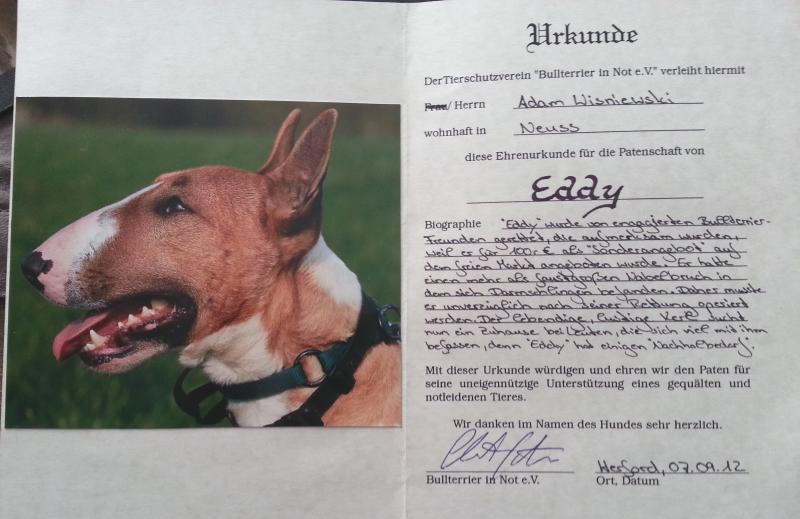 Urkunde
Der Tierschutzverein "Bullterrier in Not e.V." verleiht hiermit
Frau/ Herrn Adam Wisniewski
wohnhaft in Neuss
diese Ehrenurkunde für die Patenschaft von
Eddy
Biographie "Eddy" wurde von engagierten Bullterrier-
Freunden gerettet, die aufmerksam wurden,
weil er für 100,- € als "Sonderangebot" auf
dem freien Markt angeboten wurde. Er hatte
einen mehr als faustgroßen Nabelbruch in
dem sich Darmschlingen befanden. Daher musste
er unverzüglich nach seiner Rettung operiert
werden. Der lebendige, lustige Kerl sucht
nun ein Zuhause bei Leuten, die sich viel mit ihm
befassen, denn "Eddy" hat einigen "Nachholbedarf".
Mit dieser Urkunde würdigen und ehren wir den Paten für
seine uneigennützige Unterstützung eines gequälten und
notleidenden Tieres.
Wir danken im Namen des Hundes sehr herzlich.
Herford, 07.09.12
Bullterrier in Not e.V. Ort, Datum